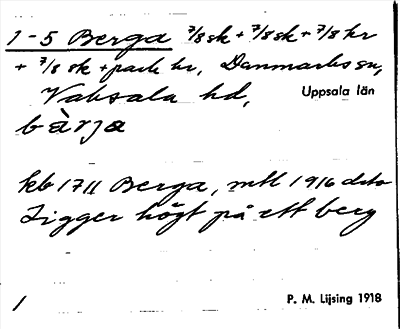 1-5 Berga 7/8 sk + 7/8 sk + 7/8 kr
+ 7/8 sk + park kr, Danmarks sn,
Vaksala hd, Uppsala län
bàrja
kb 1711 Berga, mtl 1916 dito
Ligger högt på ett berg
1 P. M. Lijsing 1918